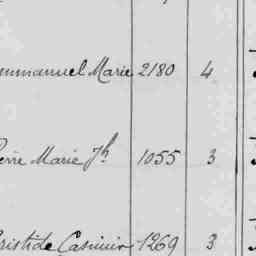 Emmanuel Marie 2180 4
Pierre Marie Jh 1055 3
Aristide Casimir 1269 3